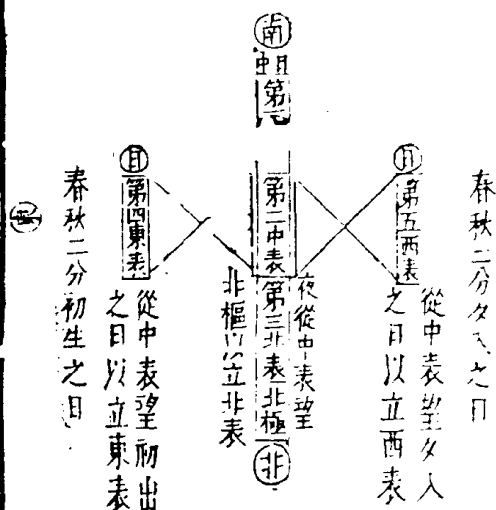 春秋二分夕入之日
日
第五西表
從中表望夕入
之日以立西表
南
第
第二中表第三北表北極
北
夜從中表望
北樞以立北表
日
第四東表
從中表望初出
之日以立東表
春秋二分初生之日